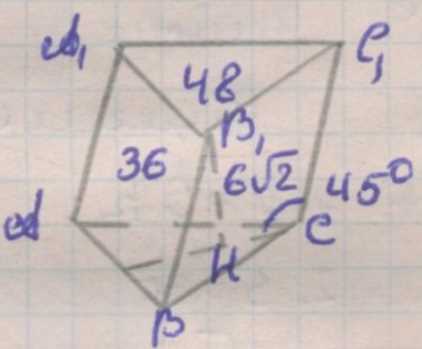 A₁ C₁
48
B₁
36 6√2 45°
A C
H
B